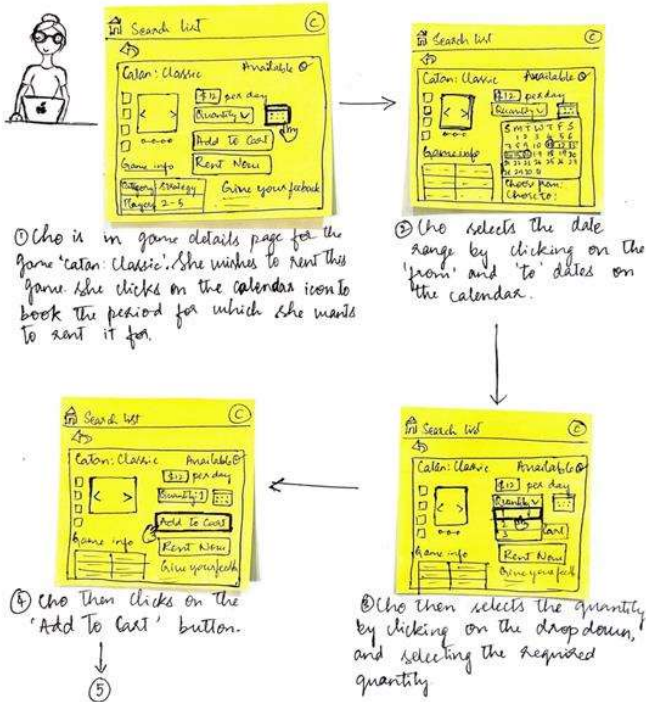 Search list C
Catan: Classic Available
$12 per day
Quantity
Add To Cart
Rent Now
Game info
Category Strategy
Players 2-5
Give your feeback
① Cho is in game details page for the
game 'Catan: Classic'. She wishes to rent this
game. She clicks on the calendar icon to
book the period for which she wants
to rent it for.
Search list C
Catan: Classic Available
$12 per day
Quantity
S M T W T F S
1 2 3 4 5 6
7 8 9 10
Game info
Choose from:
Chose to:
② Cho selects the date
range by clicking on the
'from' and 'to' dates on
the calendar.
Search list C
Catan: Classic Available
$12 per day
Quantity
3
Cart
Rent Now
Game info
Give your feeb
③ Cho then selects the quantity
by clicking on the drop down,
and selecting the required
quantity
Search list C
Catan: Classic Available
$12 per day
Quantity: 1
Add To Cart
Rent Now
Game info
Give your feeb
④ Cho then clicks on the
'Add To Cart' button.
⑤